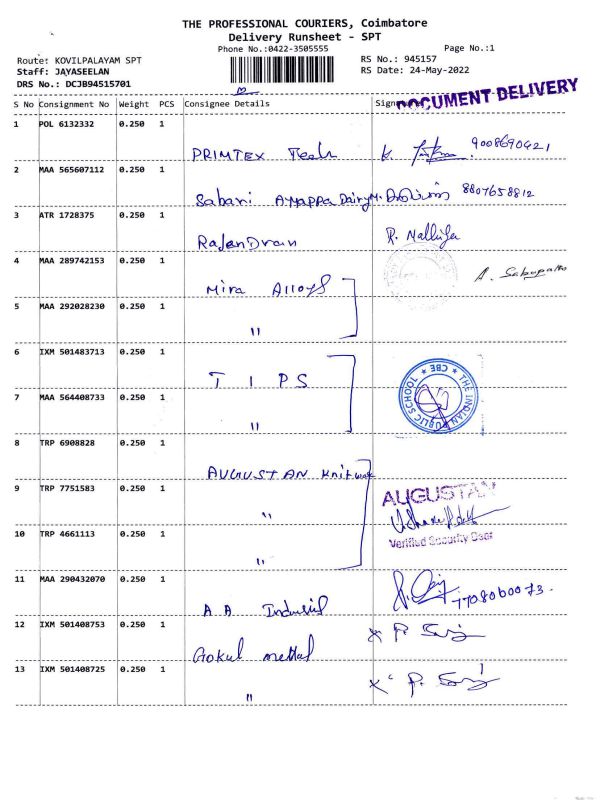 THE PROFESSIONAL COURIERS, Coimbatore
Delivery Runsheet - SPT
Phone No.:0422-3505555
Page No.:1
Route: KOVILPALAYAM SPT
RS No.: 945157
Staff: JAYASEELAN
RS Date: 24-May-2022
DRS No.: DCJB94515701
DOCUMENT DELIVERY
S No Consignment No Weight PCS Consignee Details
1 POL 6132332 0.250 1
PRIMTEX Tech K. 9008690421
2 MAA 565607112 0.250 1
Sabari Ayyappa Dairy 8807658812
3 ATR 1728375 0.250 1
RajenDran R. Nalliya
4 MAA 289742153 0.250 1
Mira Alloys A. Sabapathi
5 MAA 292028230 0.250 1
"
6 IXM 501483713 0.250 1
T I P S
THE INDIAN PUBLIC SCHOOL * CBE *
7 MAA 564408733 0.250 1
"
8 TRP 6908828 0.250 1
AUGUSTAN Knitwear
9 TRP 7751583 0.250 1
AUGUSTAN
"
10 TRP 4661113 0.250 1
Verified Security Dept
"
11 MAA 290432070 0.250 1
A A Industrie 7708060073.
12 IXM 501408753 0.250 1
Gokul mettal
13 IXM 501408725 0.250 1
"